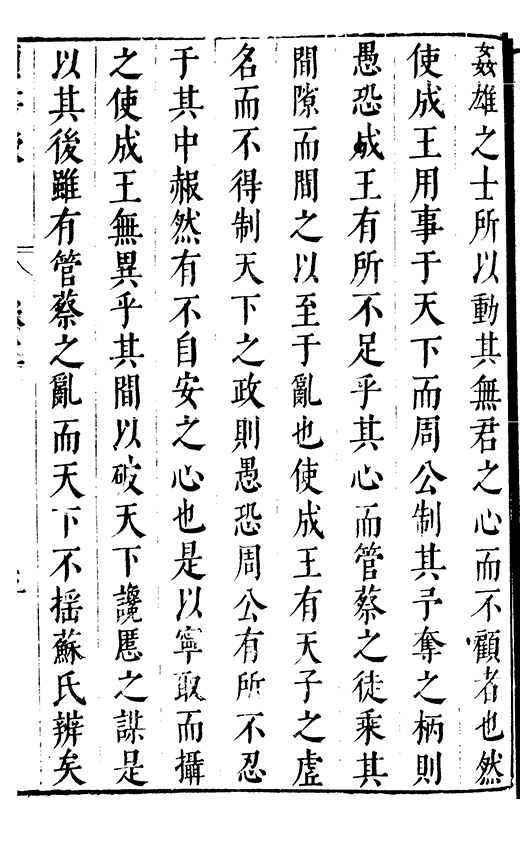 姦雄之士所以動其無君之心而不顧者也然
使成王用事于天下而周公制其予奪之柄則
愚恐成王有所不足乎其心而管蔡之徒乘其
間隙而間之以至于亂也使成王有天子之虗
名而不得制天下之政則愚恐周公有所不忍
于其中赧然有不自安之心也是以寧取而攝
之使成王無異乎其間以破天下讒慝之謀是
以其後雖有管蔡之亂而天下不揺蘇氏辨矣